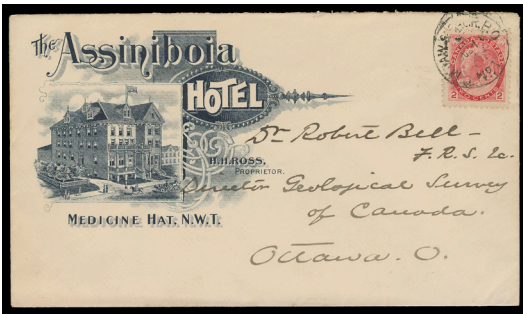 The Assiniboia
HOTEL
H.H. ROSS,
PROPRIETOR.
MEDICINE HAT, N.W.T.
Dr Robert Bell –
F.R.S. &c.
Director Geological Survey
of Canada.
Ottawa. O.
2 CENTS 2